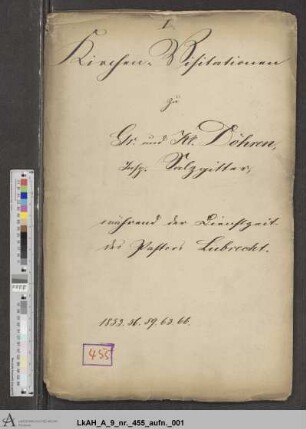 I.
Kirchen-Visitationen
zu
Gr. und Kl. Döhren,
Insp. Salzgitter,
während der Dienstzeit
des Pastors Lubrecht.
1853. 56. 59. 63. 66.
455
LkAH_A_9_nr._455_aufn._001